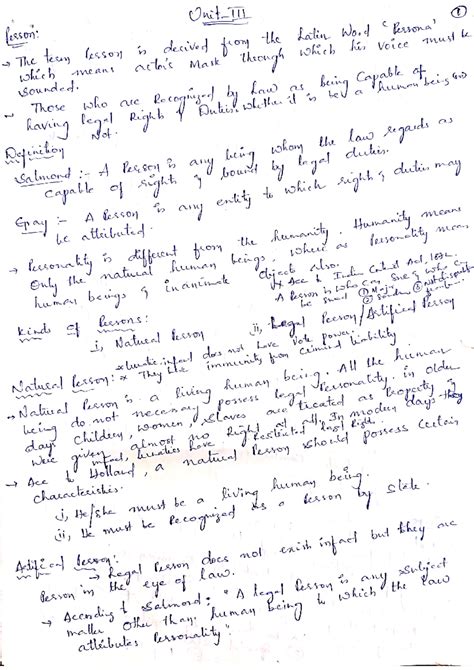 Unit-III
①
Person:
→ The term Person is derived from the Latin Word "Persona"
which means actor's Mask through which his voice must be
sounded.
Those who are Recognized by Law as being Capable of
having legal Rights & Duties. Whether it is be a human being or
Not.
Definition
Salmond :- A Person is any being whom the law regards as
capable of rights & bound by legal duties.
Gray :- A Person is any entity to which rights & duties may
be attributed.
→ Personality is different from the humanity. Humanity means
Only the natural human beings, where as Personality means
human beings & inanimate objects also.
Acc to Indian Contract Act, 1872
A Person is Who Can Sue & Who Can
be Sued ① Major ②
Kinds of Persons:
i, Natural Person ii, Legal Person/Artificial Person
* lunatic, infant does not have Vote power.
Natural Person: * They like immunity from Criminal liability
→ Natural Person is a living human being. All the human
being do not necessary possess legal Personality, in older
days Children, women, Slaves are treated as Property &
were given almost no Right at all, In modern days they
infant, lunatics have restricted legal Right.
→ Acc to Holland, a natural Person Should Possess Certain
characteristics.
i, He/she must be a living human being.
ii, He must be Recognized as a Person by State.
Artifical Person:
→ Legal Person does not exist infact but they are
Person in the eye of law.
→ According to Salmond: "A legal Person is any Subject
matter Other than human being to which the law
attributes Personality"